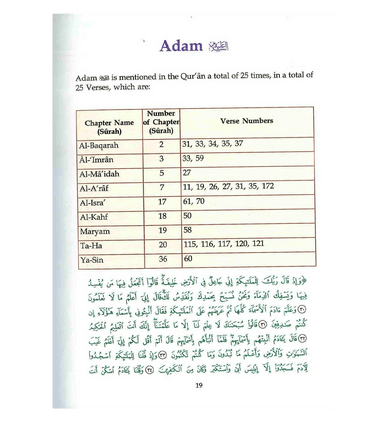 Adam
Adam is mentioned in the Qur'ân a total of 25 times, in a total of
25 Verses, which are:
Chapter Name (Sûrah) Number of Chapter (Sûrah) Verse Numbers
Al-Baqarah 2 31, 33, 34, 35, 37
Âl-'Imrân 3 33, 59
Al-Mâ'idah 5 27
Al-A'râf 7 11, 19, 26, 27, 31, 35, 172
Al-Isra' 17 61, 70
Al-Kahf 18 50
Maryam 19 58
Ta-Ha 20 115, 116, 117, 120, 121
Ya-Sin 36 60
﴿وَإِذْ قَالَ رَبُّكَ لِلْمَلَٰٓئِكَةِ إِنِّي جَاعِلٌ فِي الْأَرْضِ خَلِيفَةً قَالُوٓا أَتَجْعَلُ فِيهَا مَن يُفْسِدُ
فِيهَا وَيَسْفِكُ الدِّمَآءَ وَنَحْنُ نُسَبِّحُ بِحَمْدِكَ وَنُقَدِّسُ لَكَ قَالَ إِنِّيٓ أَعْلَمُ مَا لَا تَعْلَمُونَ
(٣٠) وَعَلَّمَ ءَادَمَ الْأَسْمَآءَ كُلَّهَا ثُمَّ عَرَضَهُمْ عَلَى الْمَلَٰٓئِكَةِ فَقَالَ أَنبِئُونِي بِأَسْمَآءِ هَٰٓؤُلَآءِ إِن
كُنتُمْ صَٰدِقِينَ (٣١) قَالُوا سُبْحَٰنَكَ لَا عِلْمَ لَنَآ إِلَّا مَا عَلَّمْتَنَآ إِنَّكَ أَنتَ الْعَلِيمُ الْحَكِيمُ
(٣٢) قَالَ يَٰٓـَٔادَمُ أَنبِئْهُم بِأَسْمَآئِهِمْ فَلَمَّآ أَنبَأَهُم بِأَسْمَآئِهِمْ قَالَ أَلَمْ أَقُل لَّكُمْ إِنِّيٓ أَعْلَمُ غَيْبَ
السَّمَٰوَٰتِ وَالْأَرْضِ وَأَعْلَمُ مَا تُبْدُونَ وَمَا كُنتُمْ تَكْتُمُونَ (٣٣) وَإِذْ قُلْنَا لِلْمَلَٰٓئِكَةِ اسْجُدُوا
لِـَٔادَمَ فَسَجَدُوٓا إِلَّآ إِبْلِيسَ أَبَىٰ وَاسْتَكْبَرَ وَكَانَ مِنَ الْكَٰفِرِينَ (٣٤) وَقُلْنَا يَٰٓـَٔادَمُ اسْكُنْ أَنتَ
19